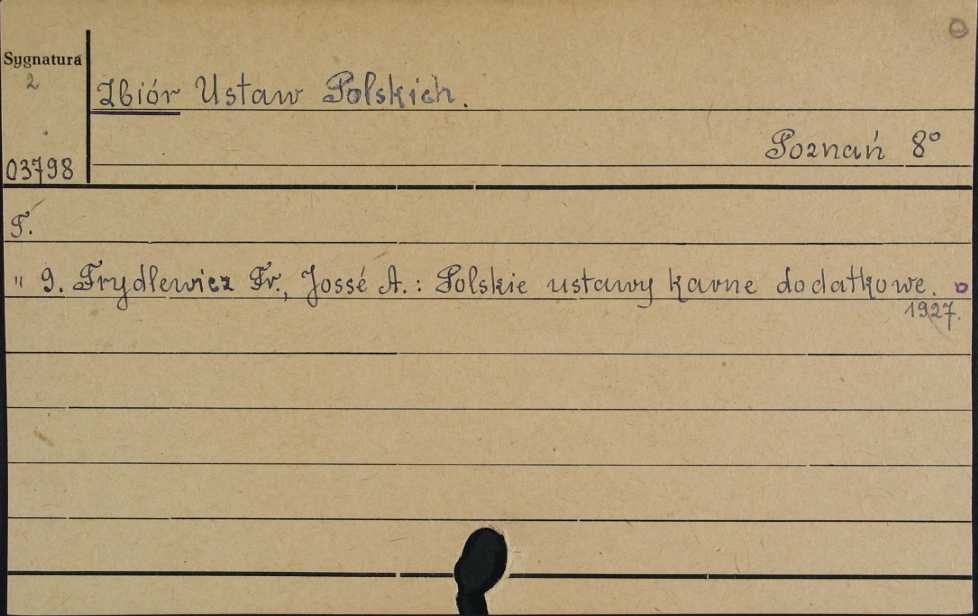 Sygnatura
2
Zbiór Ustaw Polskich.
Poznań 8°
03798
T.
" 9. Frydlewicz Fr., Jossé A.: Polskie ustawy karne dodatkowe.
1927.